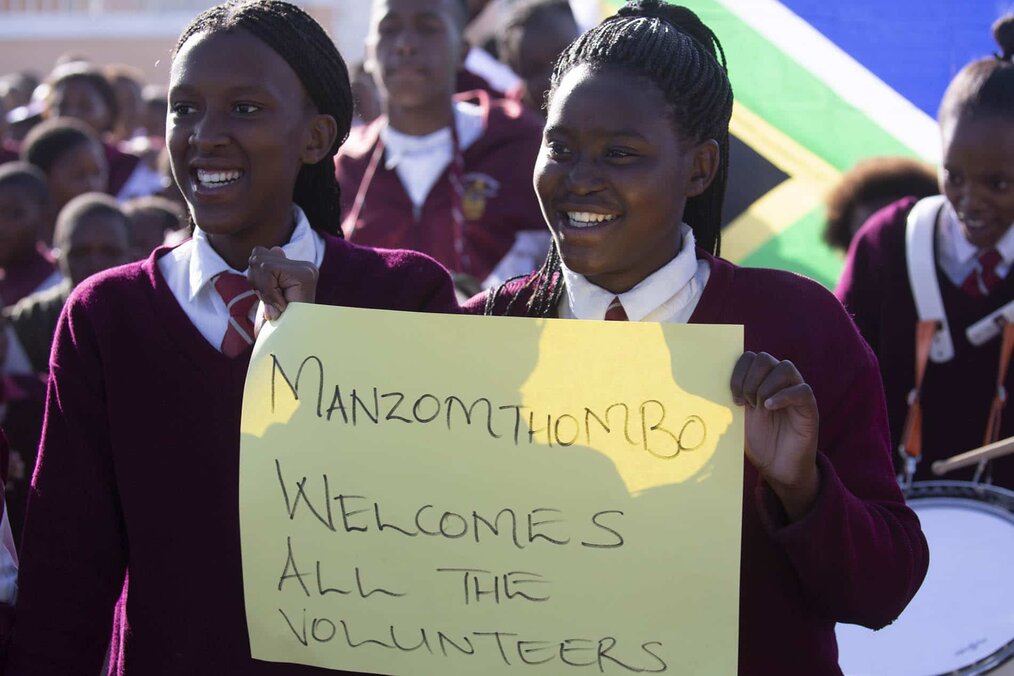 MANZOMTHOMBO
WELCOMES
ALL THE
VOLUNTEERS